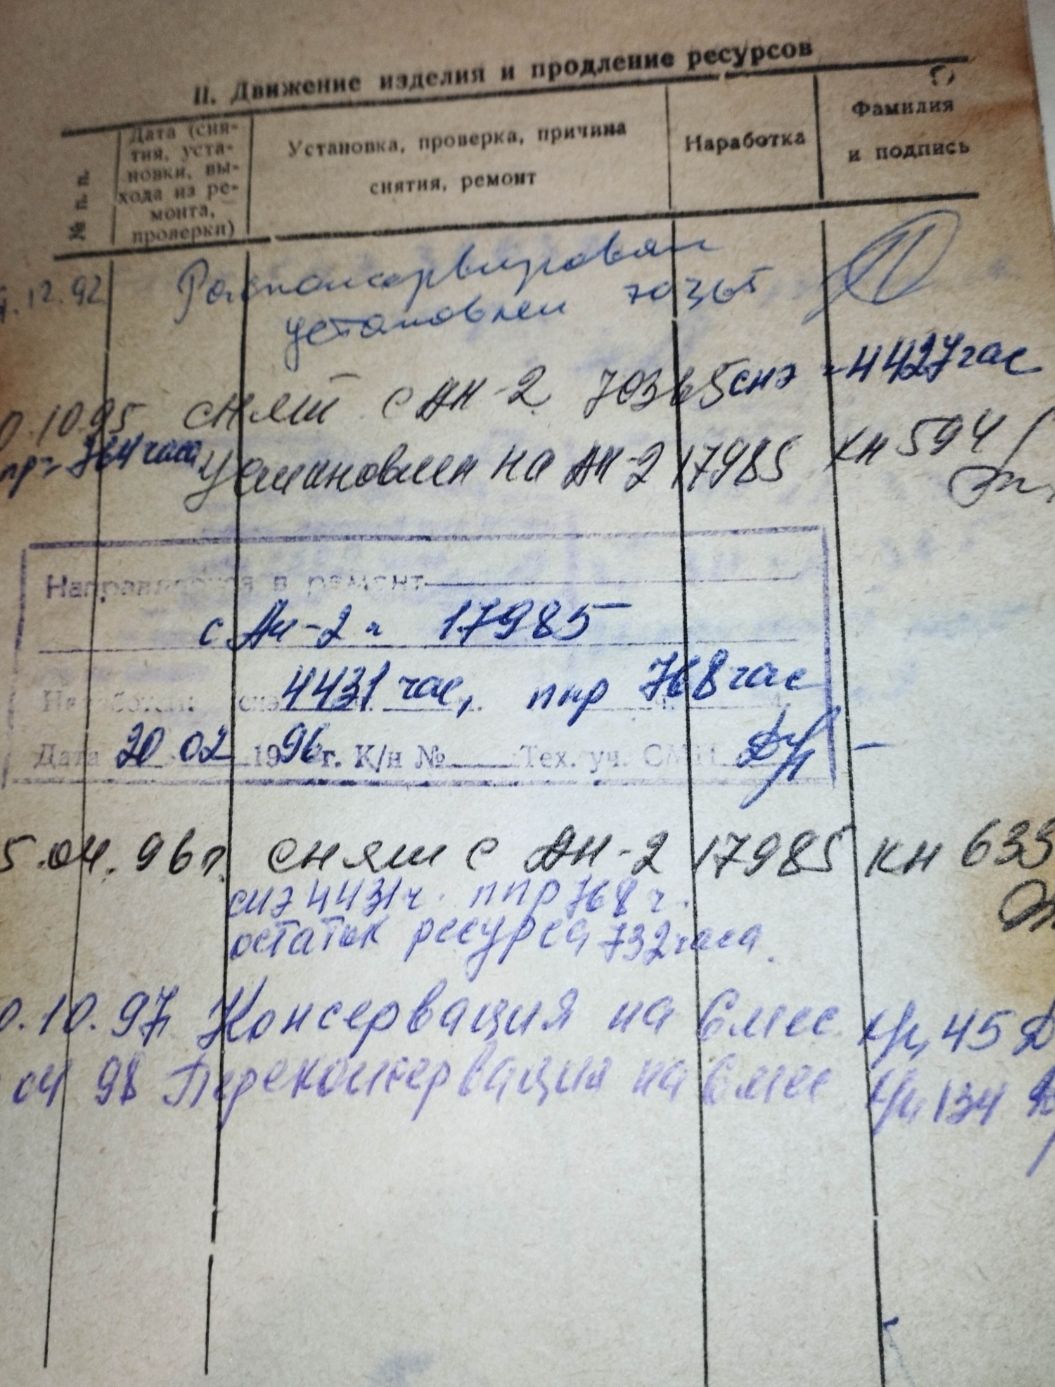 II. Движение изделия и продление ресурсов
№ п. п.
Дата (сня-
тия, уста-
новки, вы-
хода из ре-
монта,
проверки)
Установка, проверка, причина
снятия, ремонт
Наработка
Фамилия
и подпись
.12.92 Расконсервирован
установлен 70365
0.10.95 снят с АН-2 70365 снэ - 4427 час
ппр= 764 часа Установлен на АН-2 17985 кн 594
Направляется в ремонт
с Ан-2 17985
Наработка: снэ 4431 час, ппр 768 час
Дата 20 02 1996 г. К/н № Тех. уч.
5.04.96г. снят с АН-2 17985 кн 633
снэ 4431ч. ппр 768 ч.
остаток ресурса 732 часа.
0.10.97 Консервация на 6 мес. 45
04 98 Переконсервация на 6 мес 134